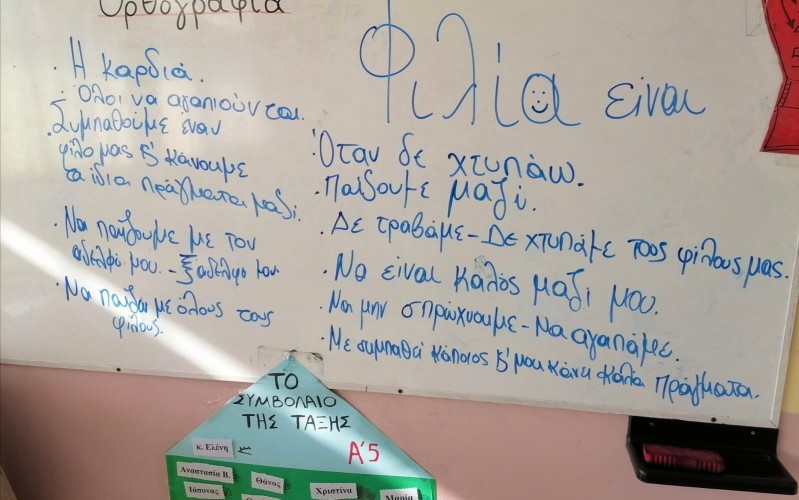 Ορθογραφία
Φιλία είναι
· Η καρδιά.
· Όλοι να αγαπιούνται.
· Συμπαθούμε έναν
φίλο μας κ' κάνουμε
τα ίδια πράγματα μαζί.
· Να παίζουμε με τον
αδελφό μου. - ξαδελφο μου.
· Να παίζω με όλους τους
φίλους.
· Όταν δε χτυπάω.
· Παίζουμε μαζί.
· Δε τραβάμε - Δε χτυπάμε τους φίλους μας.
· Να είναι καλός μαζί μου.
· Να μην σπρώχνουμε - Να αγαπάμε.
· Με συμπαθεί κάποιος κ' μου κάνει καλά πράγματα.
ΤΟ
ΣΥΜΒΟΛΑΙΟ
ΤΗΣ ΤΑΞΗΣ
Α'5
κ. Ελένη
Αναστασία Β.
Θάνος
Χριστίνα
Μαρία
Ιάσονας